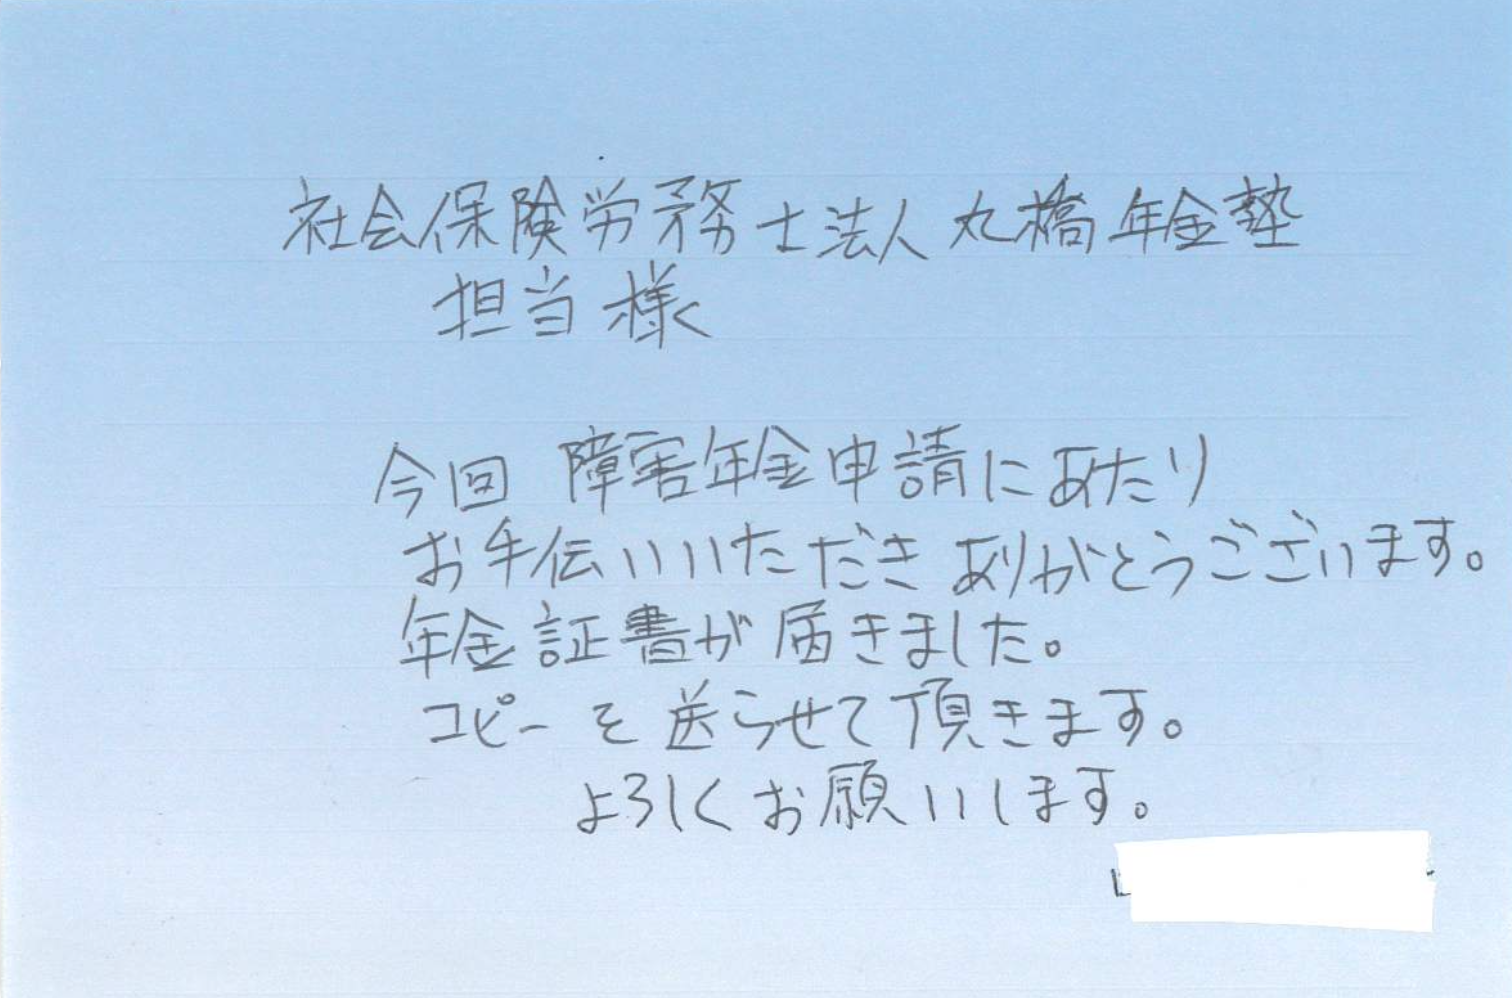 社会保険労務士法人 丸橋年金塾
担当様
今回 障害年金申請にあたり
お手伝いいただき ありがとうございます。
年金証書が届きました。
コピーを送らせて頂きます。
よろしくお願いします。